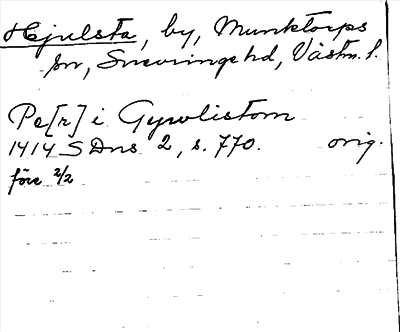 Hjulsta, by, Munktorps
sn, Snevringe hd, Västm. l.
Pe[r] i Gywlistom
1414 SDns 2, s. 770. orig.
före 2/2